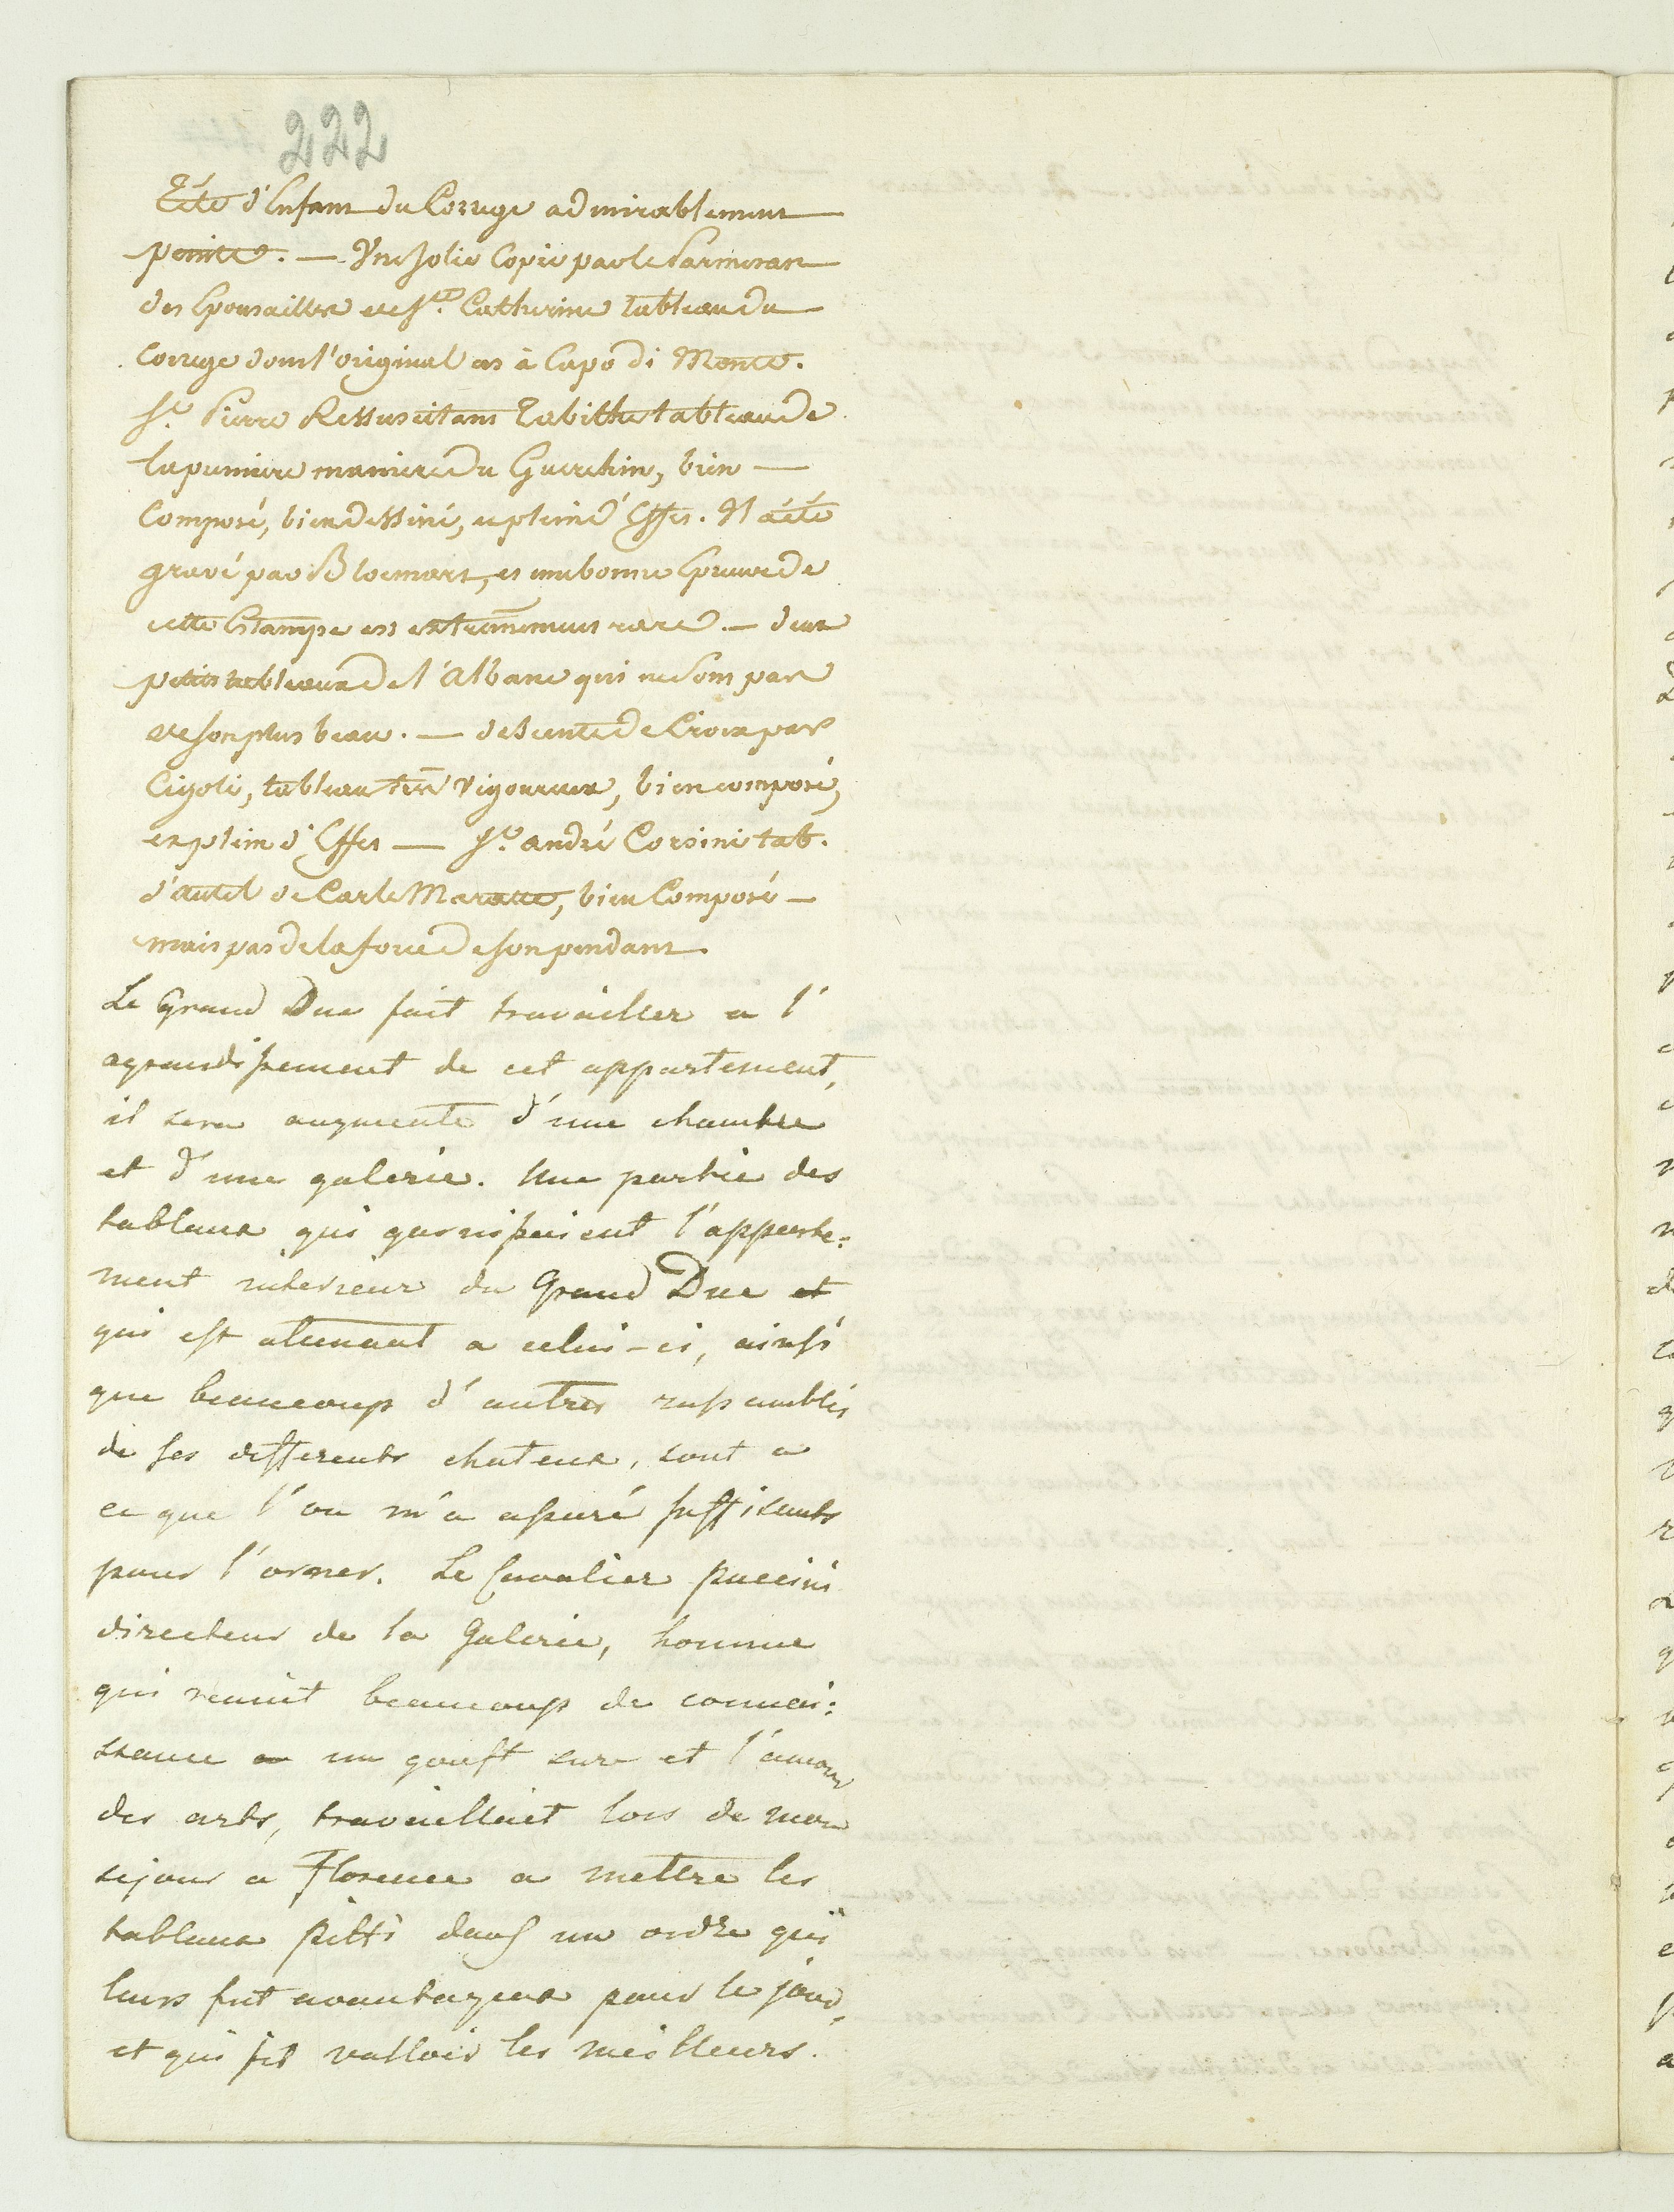 222
Tête d'Enfant du Correge admirablement
peinte. — Une Jolie Copie par le Parmesan
des Epousailles de Ste. Catherine tableau du
Correge dont l'original est à Capo di Monte.
St. Pierre Ressuscitant Tabithe tableau de
la premiere maniere du Guerchin, bien —
Composé, bien dessiné, et plein d'Effet. Il a été
gravé par Bloemart, et une bonne Epreuve de
cette Estampe est extremement rare. — deux
petits tableaux de l'Albane qui ne sont pas
de son plus beau. — descente de Croix par
Cigoli, tableau très vigoureux, bien composé,
et plein d'Effet — St. André Corsini tab.
d'autel de Carle Maratte, bien Composé —
mais pas de la force de son pendant.
Le Grand Duc fait travailler a l'
agrandissement de cet appartement,
il sera augmenté d'une chambre
et d'une galerie. Une partie des
tableaux qui garnissaient l'apparte:
ment interieur du Grand Duc et
qui est attenant a celui-ci, ainsi
que beaucoup d'autres rassemblés
de ses differents chateux, sont a
ce que l'on m'a assuré suffisants
pour l'orner. Le Cavalier Puccini
directeur de la Galerie, homme
qui reunit beaucoup de connai:
ssance un goust sure et l'amour
des arts, travaillait lors de mon
sejour a Florence a mettre les
tableaux Pitti dans un ordre qui
leurs fut avantageux pour le jour,
et qui fit valloir les meilleurs.